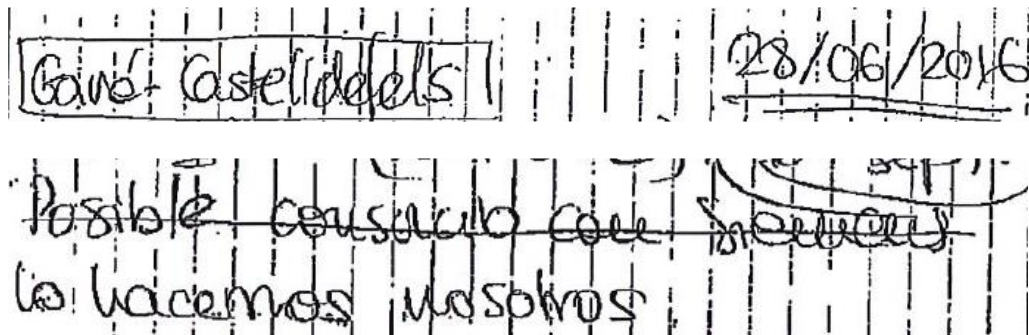 Gavá - Casteldefels
28/06/2016
sept.
Posible consorcio con Siemens
lo hacemos nosotros